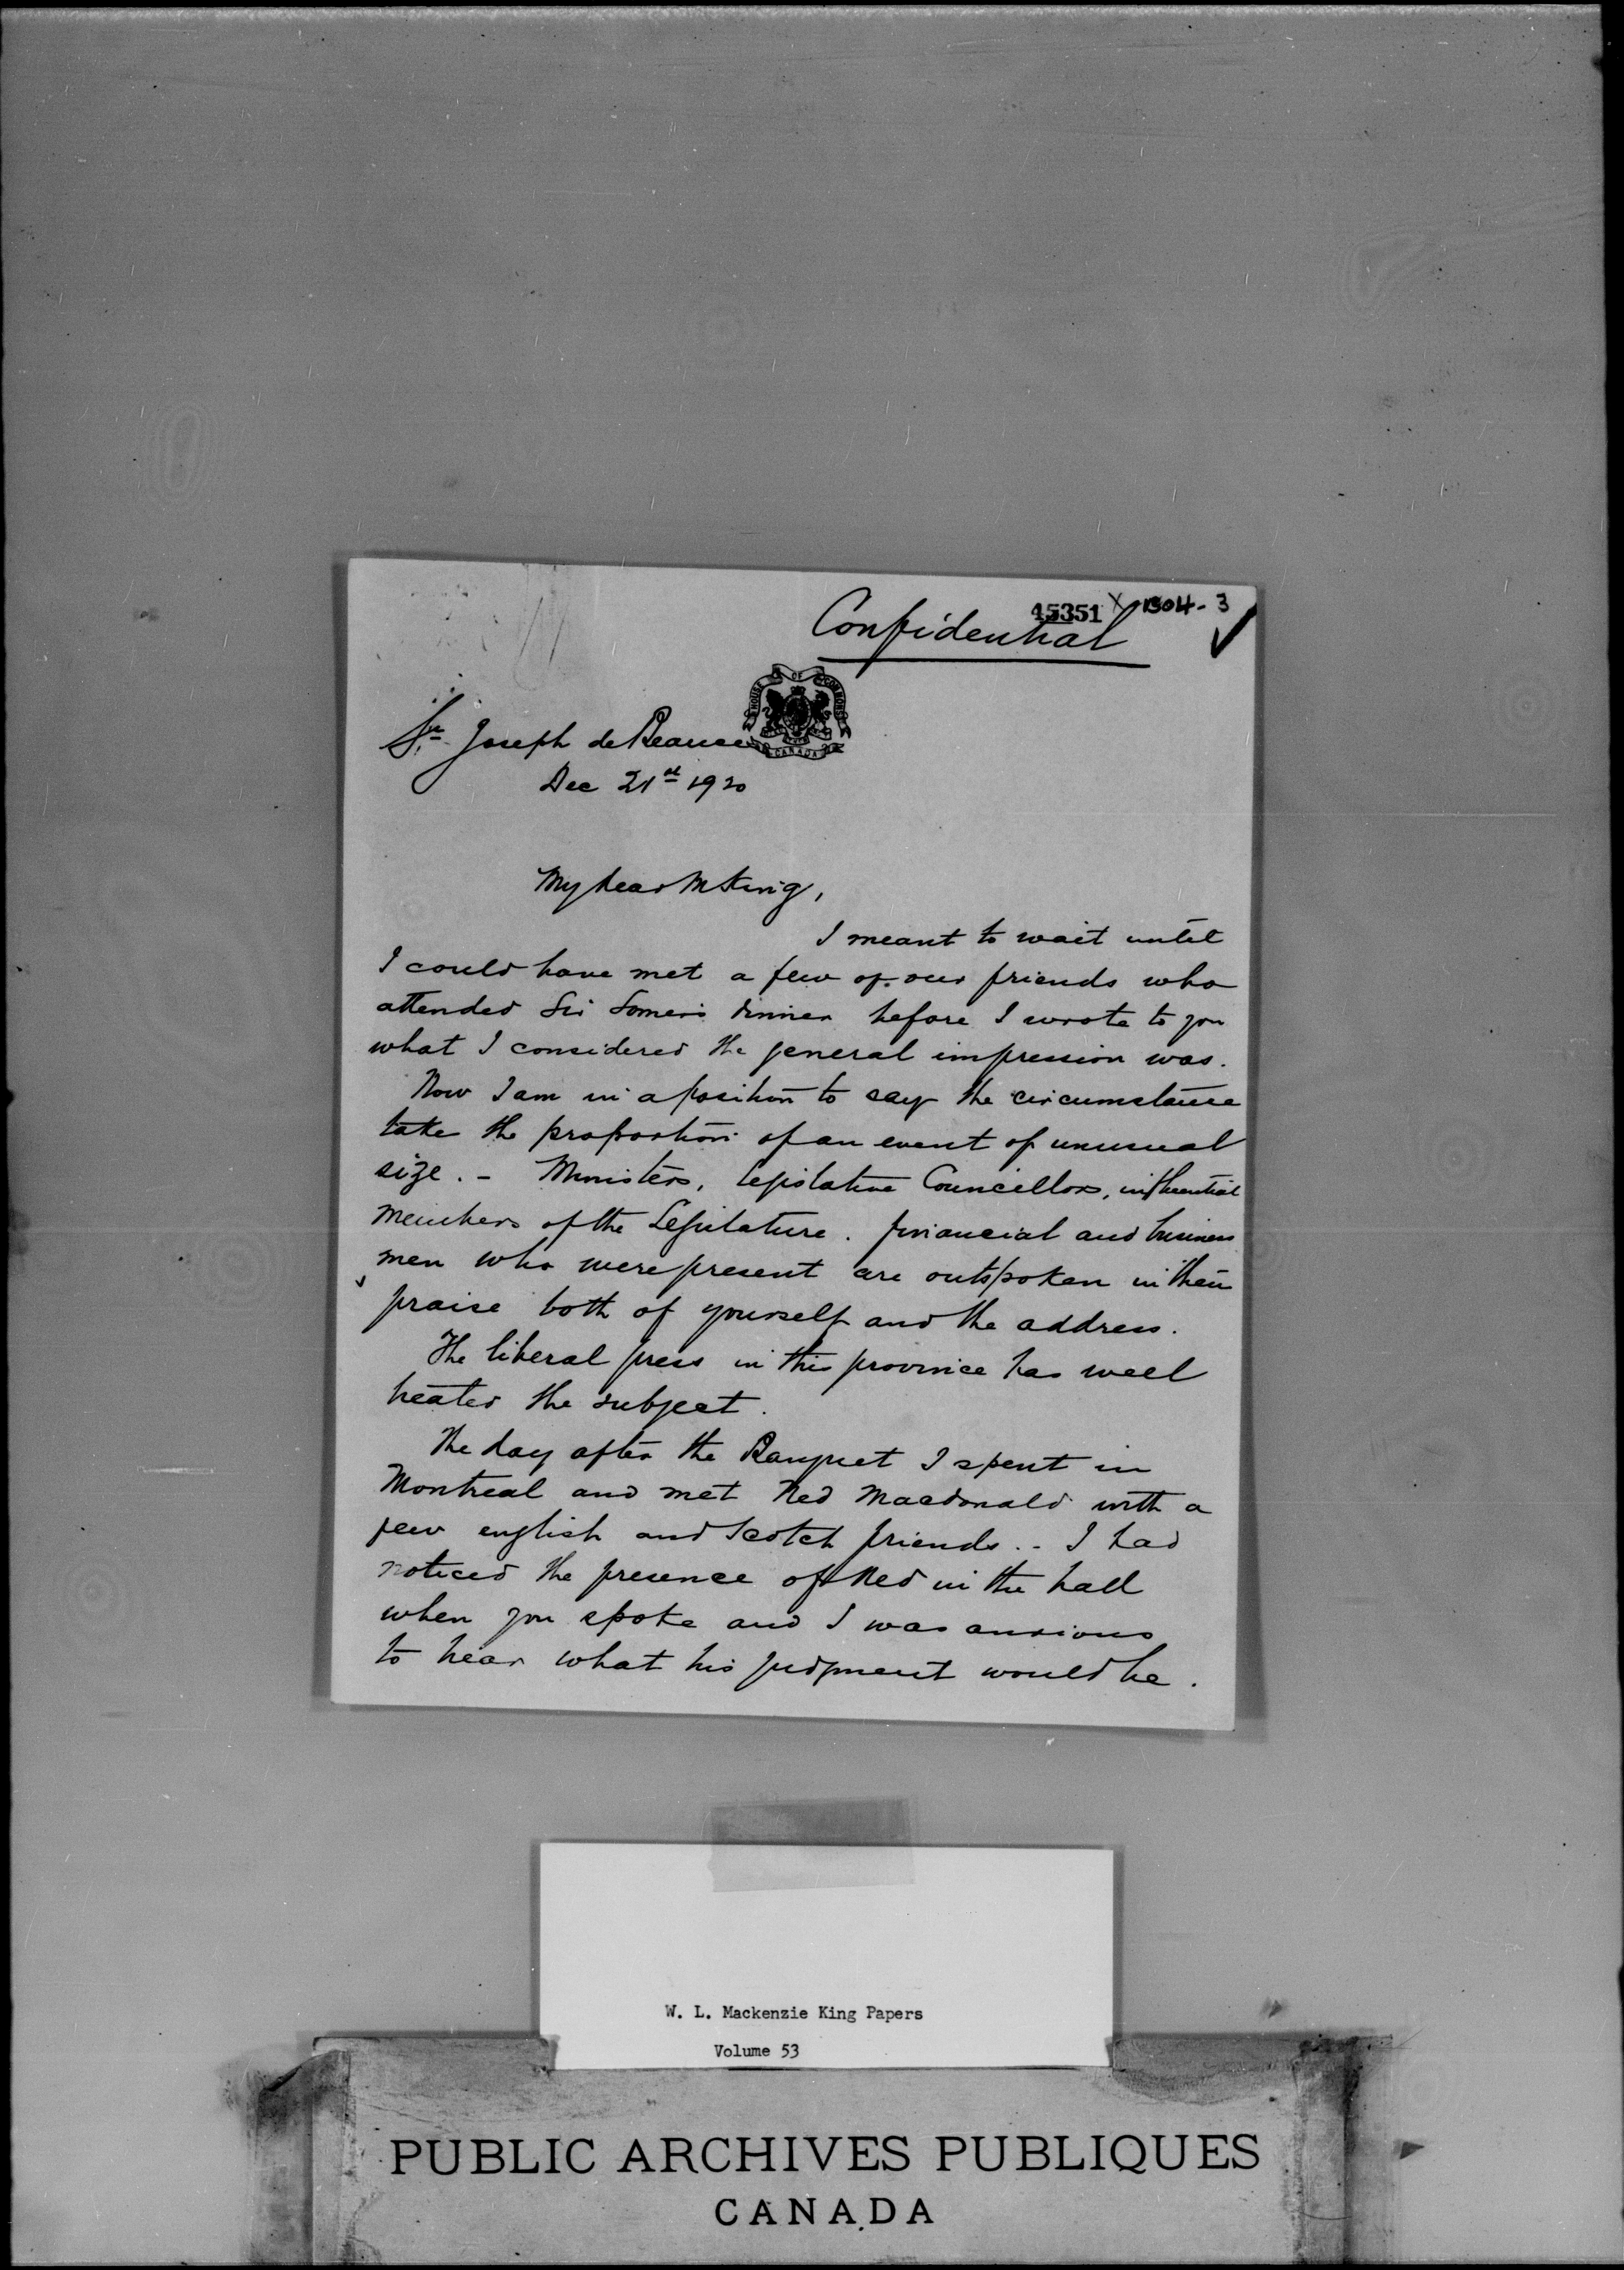 45351 X 1304-3
Confidential
HOUSE OF COMMONS
CANADA
St Joseph de Beauce
Dec 21st 1920
My dear Mr King,
I meant to wait until
I could have met a few of our friends who
attended Sir Lomer's dinner before I wrote to you
what I considered the general impression was.
Now I am in a position to say the circumstance
take the proportion of an event of unusual
size. - Ministers, Legislative Councillors, influential
members of the Legislature. financial and business
men who were present are outspoken in their
praise both of yourself and the address.
The liberal press in this province has well
treated the subject.
The day after the Banquet I spent in
Montreal and met Ned Macdonald with a
few english and Scotch friends. - I had
noticed the presence of Ned in the hall
when you spoke and I was anxious
to hear what his judgment would be.
W. L. Mackenzie King Papers
Volume 53
PUBLIC ARCHIVES PUBLIQUES
CANADA